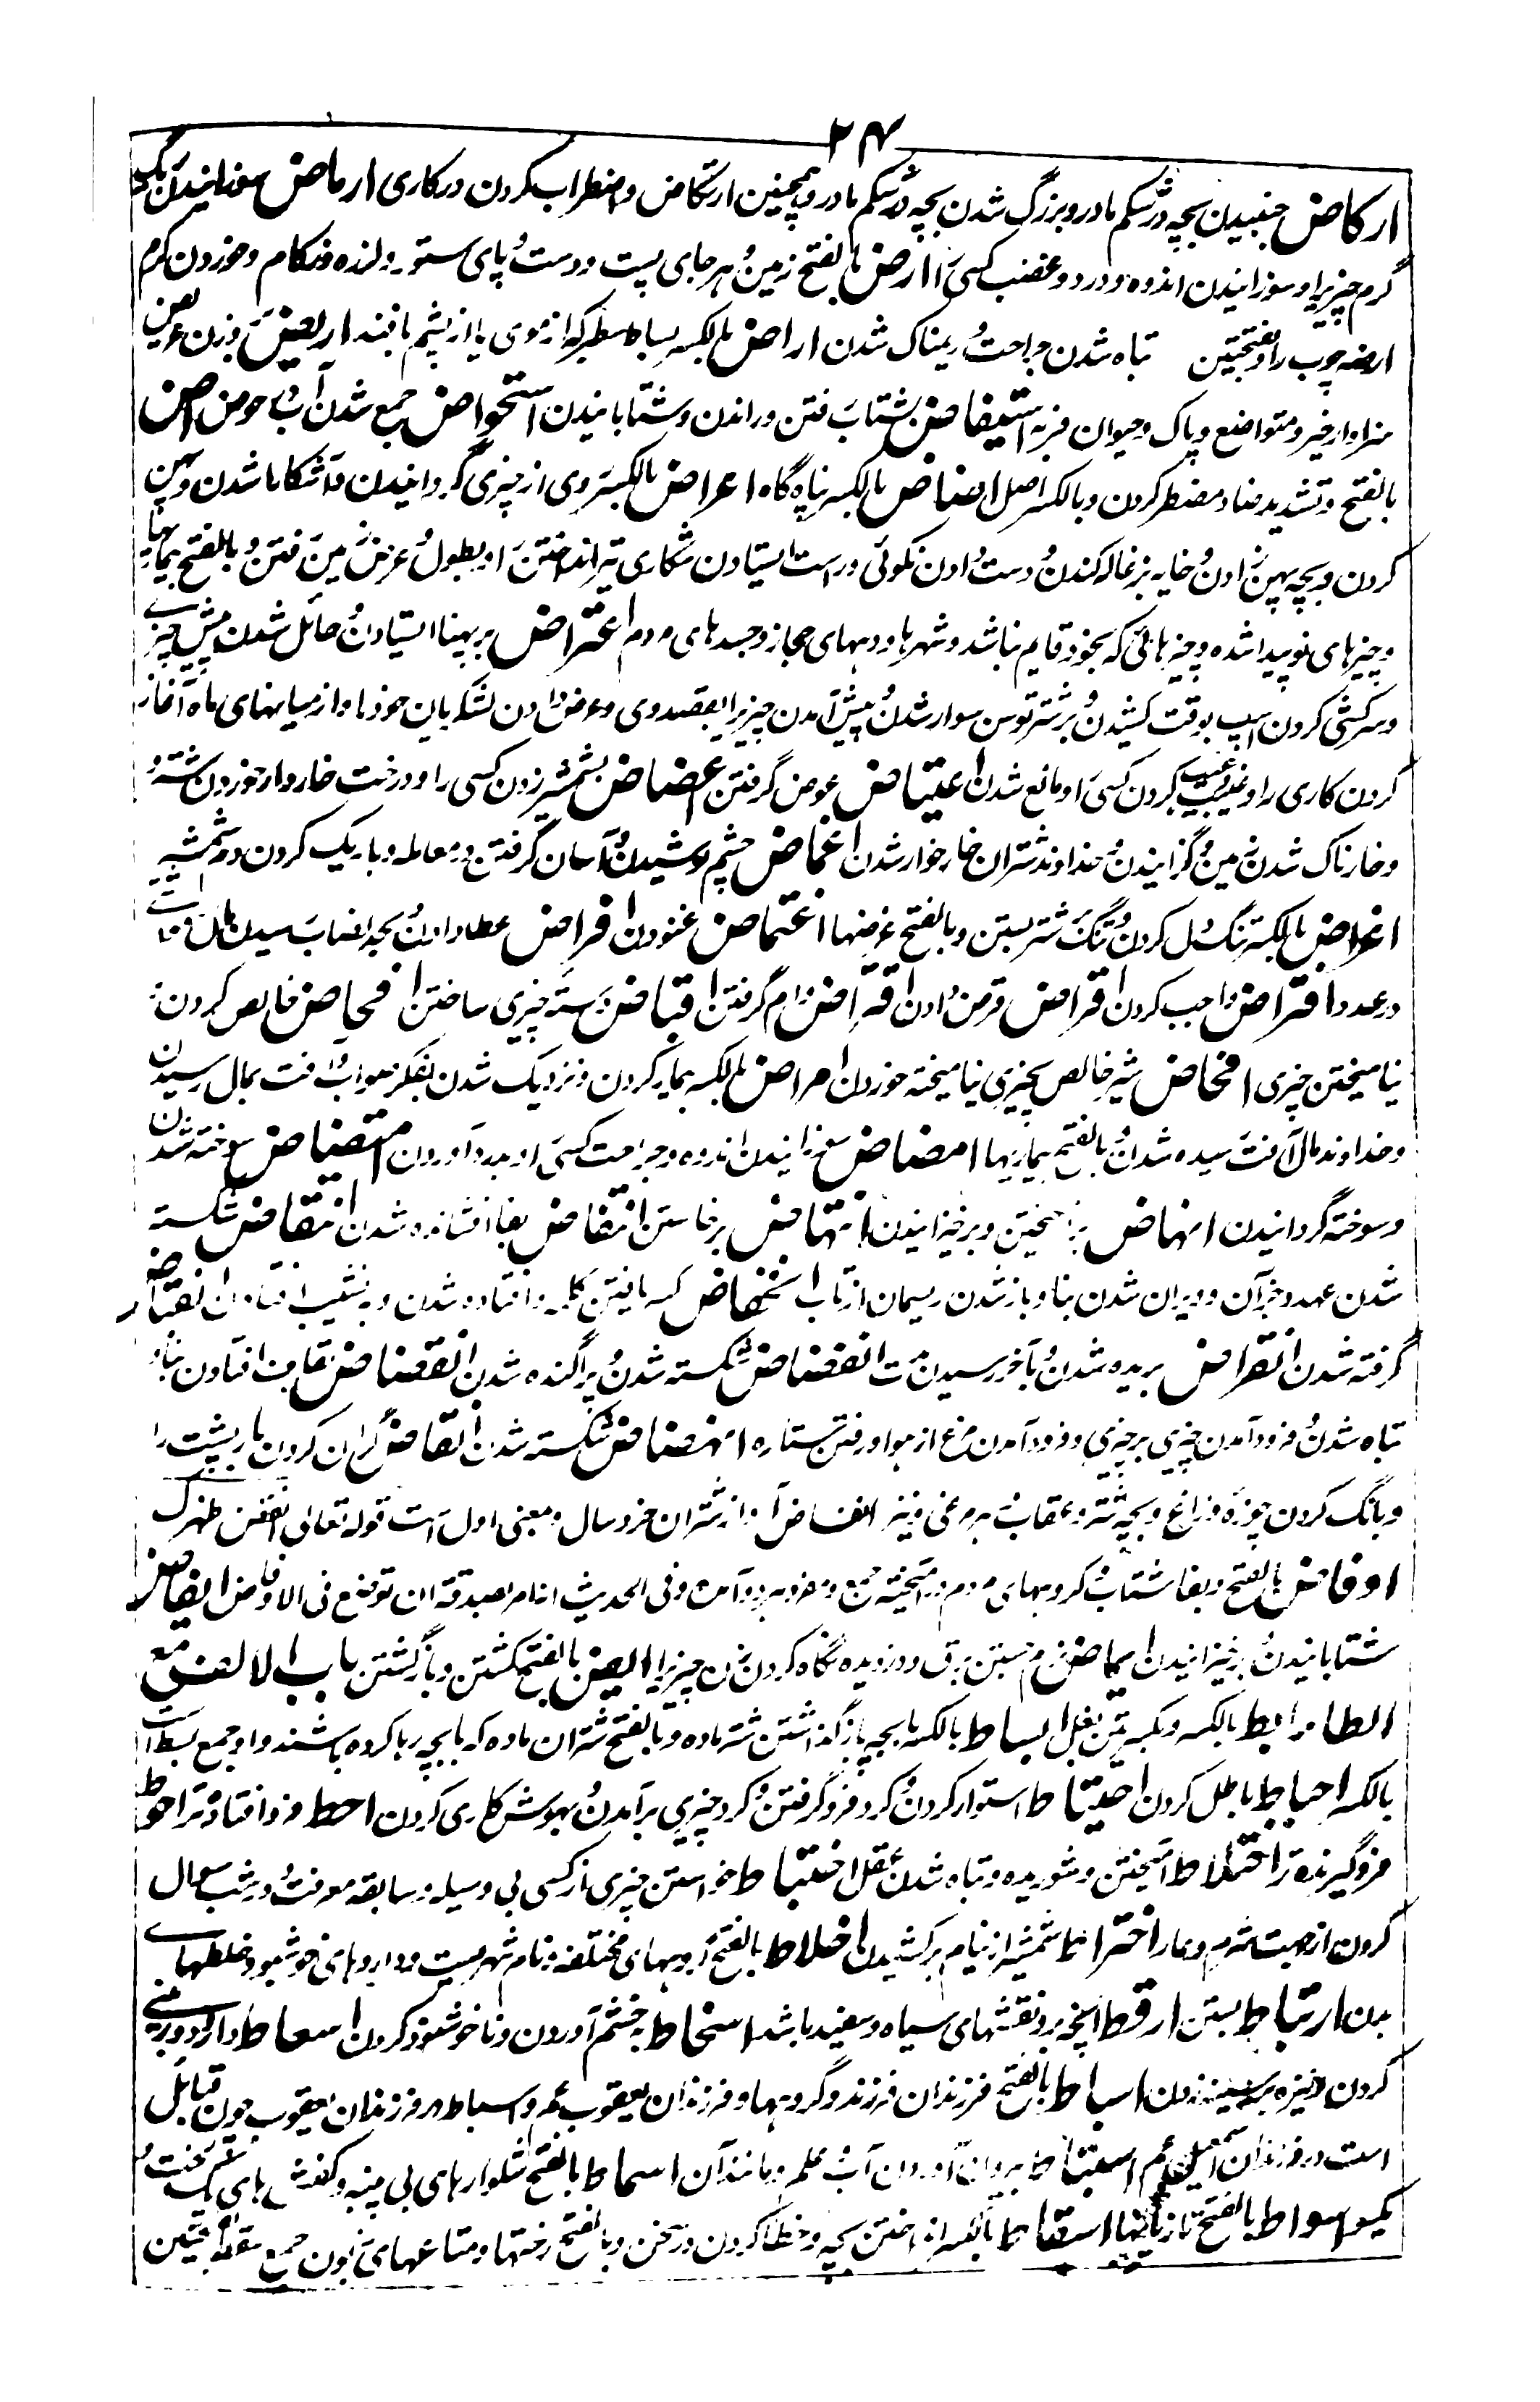 ۲۴
ارکاض جنبیدن بچه در شکم مادر و بزرگ شدن بچه در شکم مادر و همچنین ارتکاض و اضطراب کردن در کاری ارماض سوزانیدن
گرم چیزیرا و سوزانیدن اندوه و درد و غضب کسی را ارض بالفتح زمین و هر جای پست و دست و پای ستور و لرزه و زکام و خوردن کرم
ارضه چوب را و بفتحتین تباه شدن جراحت و ریمناک شدن اراض بالکسر بساط سطبر که از موی یا از پشم بافند اریض بوزن عریض یعنی
سزاوار خیر و متواضع و پاک و حیوان فربه استیفاض بشتاب رفتن و راندن و شتابانیدن استحواض جمع شدن آب در حوض اض
بالفتح و تشدید ضاد مضطر کردن و بالکسر اصل اضاض بالکسر پناه گاه اعراض بالکسر روی از چیزی گردانیدن و آشکارا شدن و پهن
کردن و بچه پهن زادن و خایه بزغاله کندن و دست دادن نکوئی و راست ایستادن شکاری تیر انداختن را و بطول و عرض زمین رفتن و بالفتح
و چیزهای نو پیدا شده و چیزهائی که بخود قایم نباشد و شهرها و دیههای حجاز و جسدهای مردم اعتراض بر پهنا ایستادن و حائل شدن پیش چیزے
و سرکشی کردن اسپ بوقت کشیدن و بر شتر توسن سوار شدن و پیش آمدن چیزیرا بقصد وی و عوض دادن لشکریان خود را و از میانهای ماه آغاز
کردن کاری را و غیبت کردن کسی را و مانع شدن اعتیاض عوض گرفتن اعضاض بشمشیر زدن کسی را و درخت خاردار خوردن شتر و
و خارناک شدن زمین و گزانیدن و خداوند شتران خار خوار شدن اغماض چشم پوشیدن و آسان گرفتن در معامله و باریک کردن دم شمشیر
اغراض بالکسر تنگ دل کردن و تنگ شتر بستن و بالفتح غرضها اغتماض غنودن افراض عطا دادن و بحد نصاب رسیدن مال
در عدد افتراض واجب کردن اقراض قرض دادن اقتراض وام گرفتن اقتباض بدسته چیزی ساختن امحاض خالص کردن
نیامیختن چیزی امتحاض شیر خالص بچیزی نیامیخته خوردن امراض بالکسر بیمار کردن و نزدیک شدن بفکر صواب و آفت بمال رسیدن
و خداوند مال آفت رسیده شدن و بالفتح بیماریها امضاض سوزانیدن اندوه و جراحت کسی را و بدرد آوردن سوخته شدن
و سوخته گردانیدن انهاض برانگیختن و برخیزانیدن انتهاض برخاستن انتفاض بفا افشانده شدن انتقاض شکسته
شدن عهد و جز آن و ویران شدن بنا و باز شدن ریسمان از تاب انخفاض کسره یافتن کلمه و افتاده شدن و به نشیب افتادن انقباض
گرفته شدن انقراض بریده شدن و بآخر رسیدن مدت انفضاض شکسته شدن و پراگنده شدن انقضاض بقاف افتادن بنا و
تباه شدن و فرود آمدن چیزی بر چیزی و فرود آمدن مرغ از هوا و رفتن ستاره انهضاض شکسته شدن انقاض گران کردن بار پشت را
و بانگ کردن چوزه و زاغ و بچه شتر و عقاب و هر مرغی و نیز انقاض آواز شتران خرد سال و معنی اول است قوله تعالی انقض ظهرک
اوفاض بالفتح و بفا شتاب و گروههای مردم درآمیخته جمع و مفرد هر دو آمده و فی الحدیث انه امر بصدقة ان توضع فی الاوفاض ایفاض
شتابانیدن و برخیزانیدن ایماض نرم جستن برق و دزدیده نگاه کردن زن چیزیرا ایض بالفتح گشتن و بازگشتن باب الالف مع
الطاء ابط بالکسر و بکسرتین بغل ابساط بالکسر با بچه باز گذاشتن شتر ماده و بالفتح شتران ماده که با بچه رها کرده باشند و او جمع بسط است
بالکسر احباط باطل کردن احتیاط استوار کردن و گرد فرو گرفتن و گرد چیزی برآمدن و بهوش کاری کردن احط فرو افتاده تر احوط
فروگیرنده تر اختلاط آمیختن و شوریده و تباه شدن عقل اختباط خواستن چیزی از کسی بی وسیله و سابقه معرفت و در شب سوال
کردن اختراط شمشیر از نیام برکشیدن اخلاط بالفتح بویهای مختلفه و نام شهریست و داروهای خوشبو و خلطهاے
بدن ارتباط بستن ارقط آنچه برو نقشهای سیاه و سفید باشد اسخاط به خشم آوردن و ناخوشنود کردن اسعاط دارو در بینی
کردن و نیزه بر سینه زدن اسباط بالفتح فرزندان فرزند و گروهها و فرزندان یعقوب عم و اسباط در فرزندان یعقوب چون قبائل
است در فرزندان اسمعیل عم استنباط بیرون آوردن آب و علم و مانند آن اسماط بالفتح شلوارهای بی پنبه و کفش های یک لخت و
اسواط بالفتح تازیانها اسقاط بالکسر انداختن بچه و خطا کردن در سخن و بالفتح رختها و متاعهای زبون جمع سقط بفتحتین